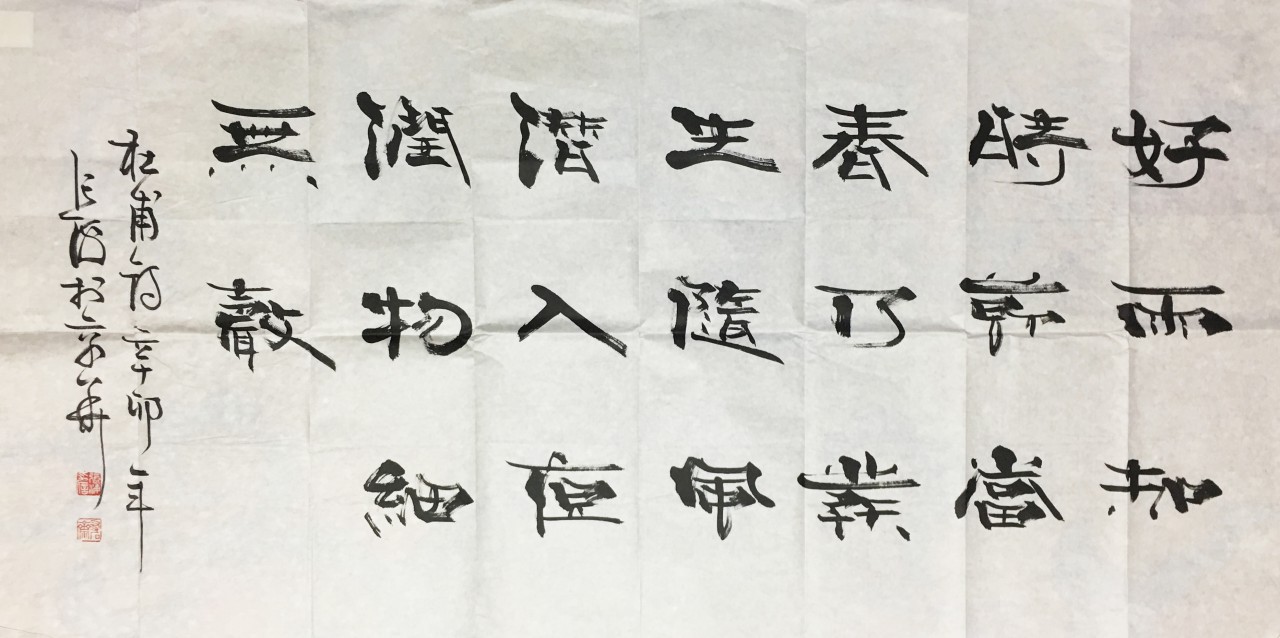 好雨知
時節當
春乃發
生隨風
潛入夜
潤物細
無聲
杜甫詩辛卯年
於京華